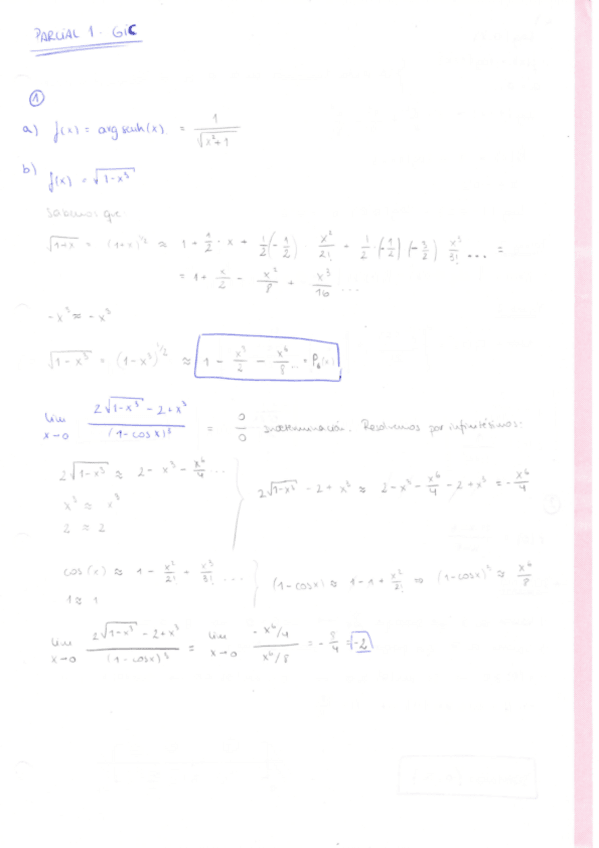 PARCIAL 1 - GIC
①
a) f(x) = arg senh(x) = 1/√(x²+1)
b) f(x) = √(1-x³)
Sabemos que
√(1+x) = (1+x)^(1/2) ≈ 1 + 1/2 · x + 1/2 (-1/2) x²/2! + 1/2 · (-1/2) (-3/2) x³/3! ... =
= 1 + x/2 - x²/8 + x³/16 ...
-x³ = -x³
√(1-x³) = (1-x³)^(1/2) ≈ 1 - x³/2 - x⁶/8 ... = P₆(x)
lim x→0 (2√(1-x³) - 2 + x³)/(1-cos x)³ = 0/0 indeterminación. Resolvemos por infinitésimos:
2√(1-x³) ≈ 2 - x³ - x⁶/4 ...
x³ ≈ x³
2 ≈ 2
} 2√(1-x³) - 2 + x³ ≈ 2 - x³ - x⁶/4 - 2 + x³ = -x⁶/4
cos(x) ≈ 1 - x²/2! + x³/3! ...
1 ≈ 1
} (1-cosx) ≈ 1 - 1 + x²/2! ⇒ (1-cosx)³ ≈ x⁶/8
lim x→0 (2√(1-x³) - 2 + x³)/(1-cosx)³ = lim x→0 (-x⁶/4)/(x⁶/8) = -8/4 = -2